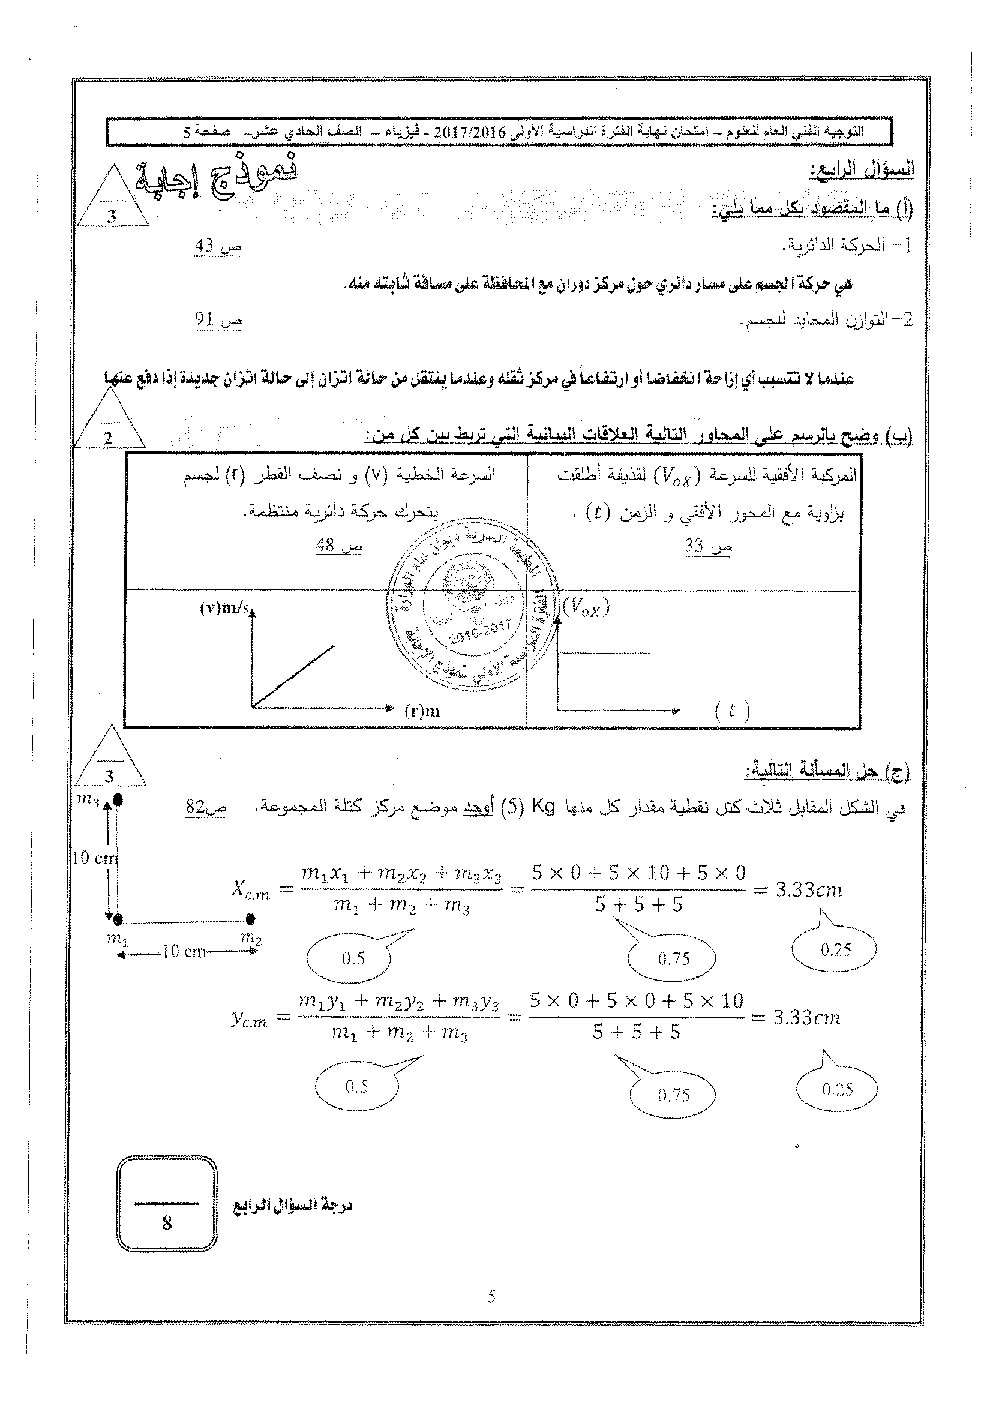 التوجيه الفني العام للعلوم – امتحان نهاية الفترة الدراسية الأولى 2017/2016 - فيزياء – الصف الحادي عشر – صفحة 5
نموذج إجابة
السؤال الرابع:
3
(أ) ما المقصود بكل مما يلي:
1- الحركة الدائرية. ص 43
هي حركة الجسم على مسار دائري حول مركز دوران مع المحافظة على مسافة ثابته منه.
2- التوازن المحايد للجسم. ص 91
عندما لا تتسبب أي إزاحة انخفاضا أو ارتفاعا في مركز ثقله وعندما ينتقل من حالة اتزان إلى حالة اتزان جديدة إذا دفع عنها
2
(ب) وضح بالرسم على المحاور التالية العلاقات البيانية التي تربط بين كل من:
المركبة الأفقية للسرعة (V₀ₓ) لقذيفة أطلقت
بزاوية مع المحور الأفقي و الزمن (t) .
ص 33
السرعة الخطية (v) و نصف القطر (r) لجسم
يتحرك حركة دائرية منتظمة.
ص 48
(V₀ₓ)
(t)
(v)m/s
(r)m
2016-2017
3
(ج) حل المسألة التالية:
في الشكل المقابل ثلاث كتل نقطية مقدار كل منها Kg (5) أوجد موضع مركز كتلة المجموعة. ص82
m₃
10 cm
m₁ m₂
10 cm
X_{c.m} = (m₁x₁ + m₂x₂ + m₃x₃)/(m₁ + m₂ + m₃) = (5 × 0 + 5 × 10 + 5 × 0)/(5 + 5 + 5) = 3.33cm
0.5 0.75 0.25
y_{c.m} = (m₁y₁ + m₂y₂ + m₃y₃)/(m₁ + m₂ + m₃) = (5 × 0 + 5 × 0 + 5 × 10)/(5 + 5 + 5) = 3.33cm
0.5 0.75 0.25
درجة السؤال الرابع
8
5